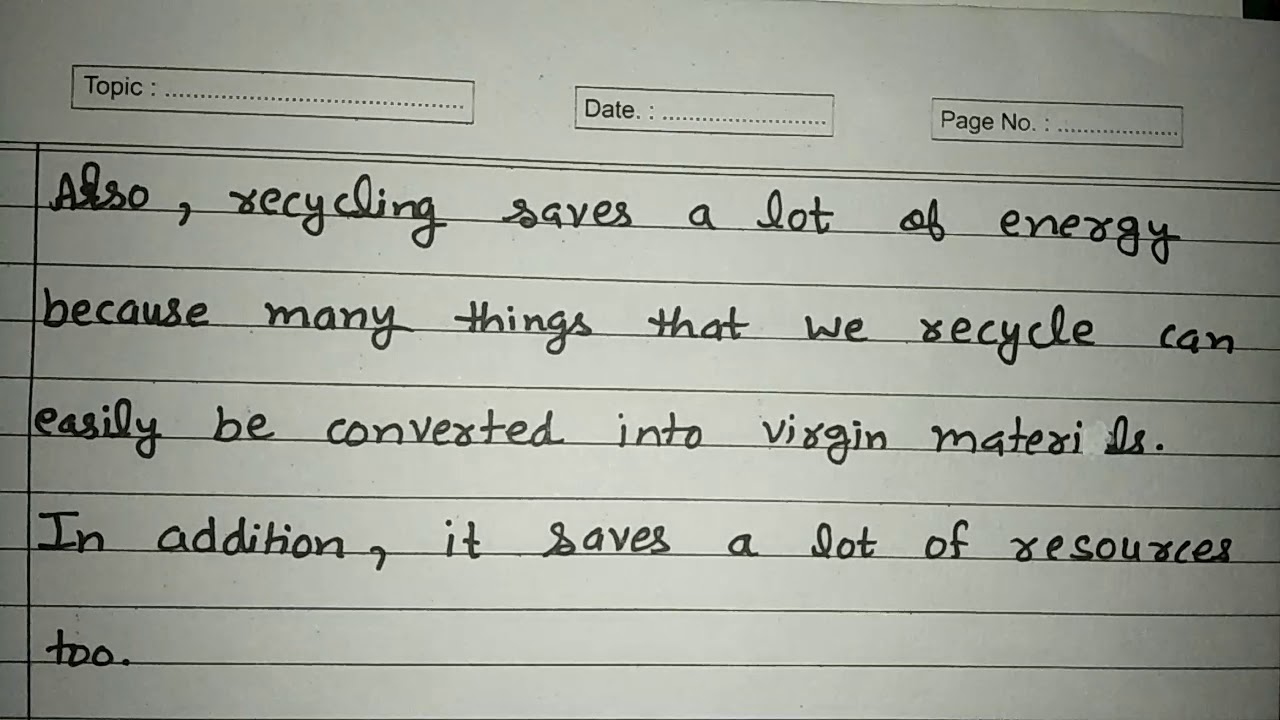 Topic : ............................................
Date. : ..........................
Page No. : ....................
Also, recycling saves a lot of energy
because many things that we recycle can
easily be converted into virgin materi ls.
In addition, it saves a lot of resources
too.